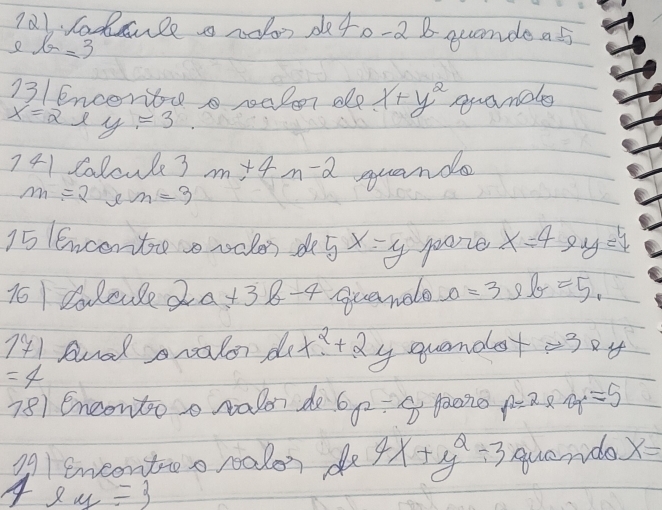 12) Calcule o valor de 4a-2b quando a=5
e b=3
13) Encontre o valor de x+y² quando
x=2 e y=3.
14) Calcule 3m+4n-2 quando
m=2 e n=3
15) Encontre o valor de 5x-y para x=4 e y=
16) Calcule 2a+3b-4 quando a=3 e b=5.
17) Qual o valor de x²+2y quando x=3 e y
=4
18) Encontre o valor de 6p-q para p=2 e q=5
19) Encontre o valor de 4x+y²-3 quando x=
1 e y=3